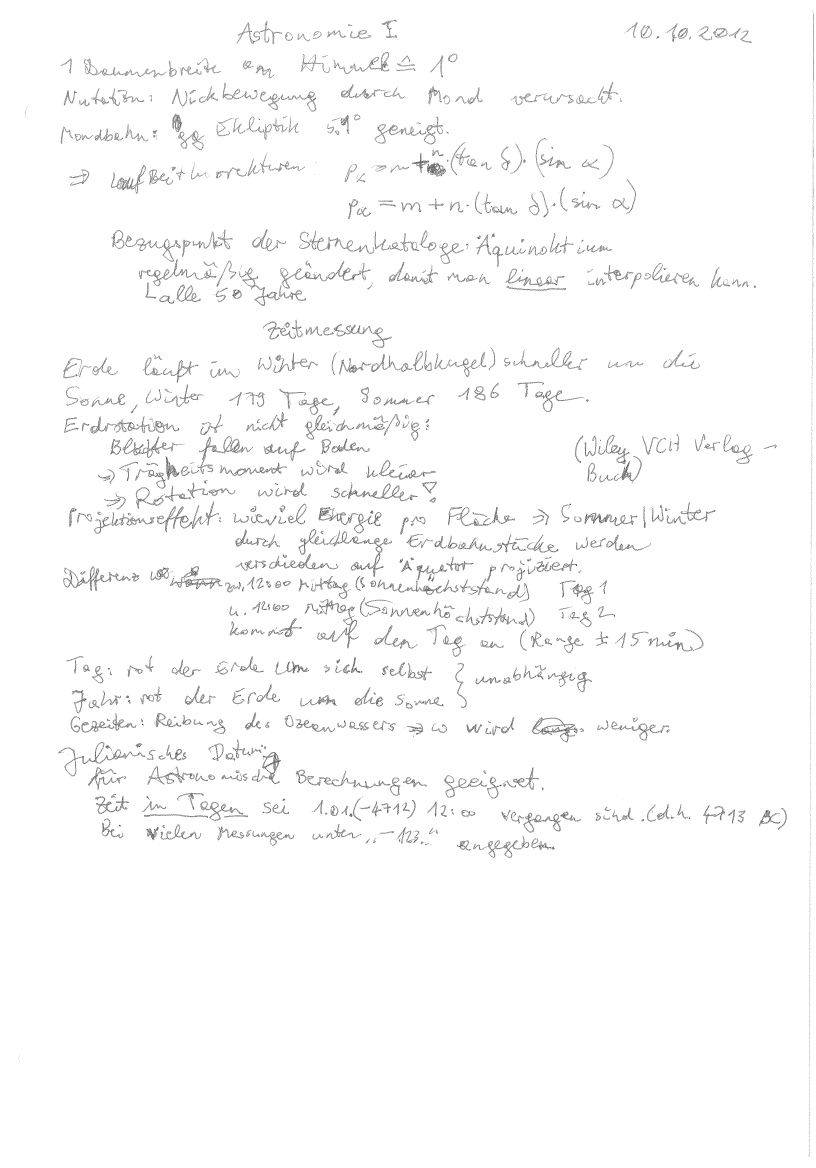 Astronomie I 10.10.2012
1 Daumenbreite am Himmel ≙ 1°
Nutation: Nickbewegung durch Mond verursacht.
Mondbahn: gg Ekliptik 5,1° geneigt.
⇒ p = n·(tan δ)·(sin α)
pα = m + n·(tan δ)·(sin α)
Bezugspunkt der Sternenkataloge: Äquinoktium
regelmäßig geändert, damit man linear interpolieren kann.
alle 50 Jahre
Zeitmessung
Erde läuft im Winter (Nordhalbkugel) schneller um die
Sonne, Winter 179 Tage, Sommer 186 Tage.
Erdrotation ist nicht gleichmäßig:
Blätter fallen auf Boden (Wiley VCH Verlag -
⇒ Trägheitsmoment wird kleiner Buch)
⇒ Rotation wird schneller!
Projektionseffekt: wieviel Energie pro Fläche ⇒ Sommer/Winter
durch gleichlange Erdbahnstücke werden
verschieden auf Äquator projiziert.
Differenz zw. 12:00 Mittag (Sonnenhöchststand) Tag 1
u. 12:00 Mittag (Sonnenhöchststand) Tag 2
kommt auf den Tag an (Range ± 15 min)
Tag: rot der Erde um sich selbst } unabhängig
Jahr: rot der Erde um die Sonne
Gezeiten: Reibung des Ozeanwassers ⇒ ω wird weniger.
Julianisches Datum:
für Astronomische Berechnungen geeignet.
Zeit in Tagen sei 1.01.(-4712) 12:00 vergangen sind. (d.h. 4713 BC)
Bei vielen Messungen unter „-123.." angegeben.